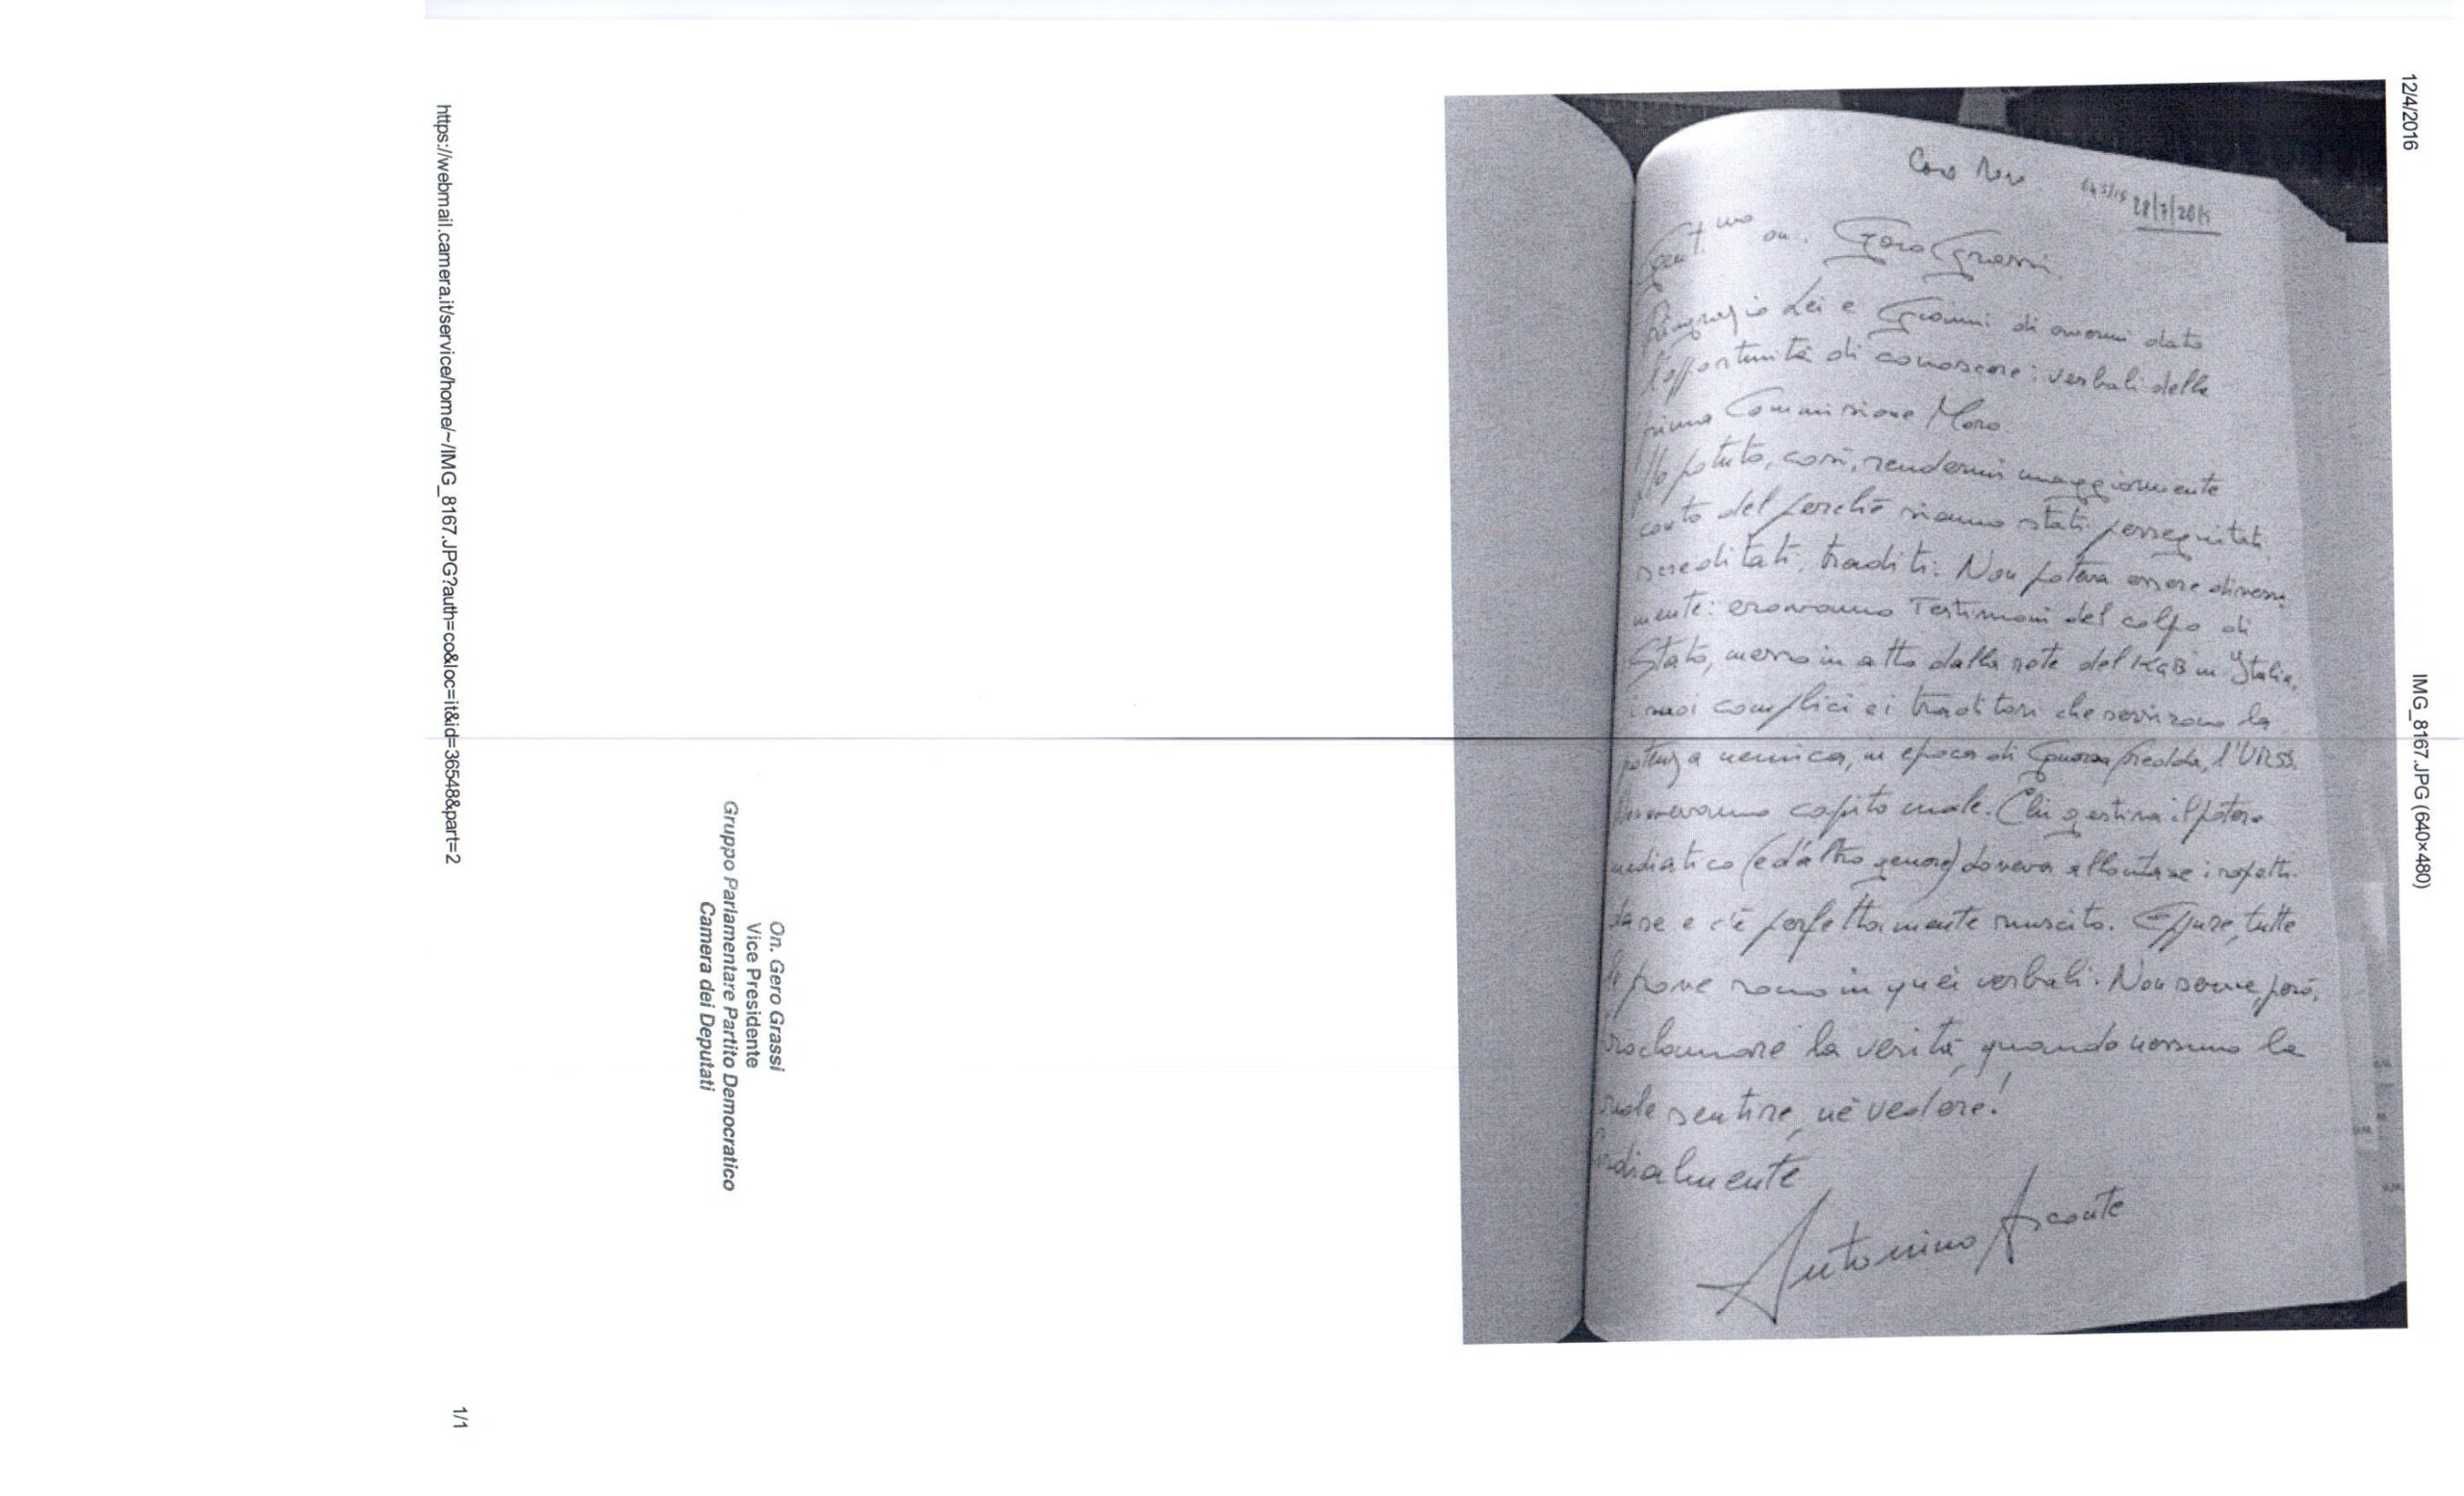 12/4/2016
IMG_8167.JPG (640×480)
Caso Moro
28/7/2015
Gent.mo on. Gero Grassi.
Ringrazio Lei e Gianni di avermi dato
l'opportunità di conoscere i verbali della
prima Commissione Moro.
Ho potuto, così, rendermi maggiormente
conto del perché siamo stati perseguitati,
screditati, traditi. Non poteva essere diversa
mente: eravamo Testimoni del colpo di
Stato, messo in atto dalla rete del KGB in Italia,
i suoi complici e i traditori che servirono la
potenza nemica, in epoca di Guerra fredda, l'URSS.
capito male. Chi gestiva il potere
mediatico (ed'altro genere) doveva
dare e c'è perfettamente riuscito. Eppure, tutte
le prove sono in quei verbali. Non serve, però,
proclamare la verità, quando nessuno la
vuole sentire, né vedere!
Cordialmente
Antonino Arconte
On. Gero Grassi
Vice Presidente
Gruppo Parlamentare Partito Democratico
Camera dei Deputati
https://webmail.camera.it/service/home/~/IMG_8167.JPG?auth=co&loc=it&id=36548&part=2
1/1